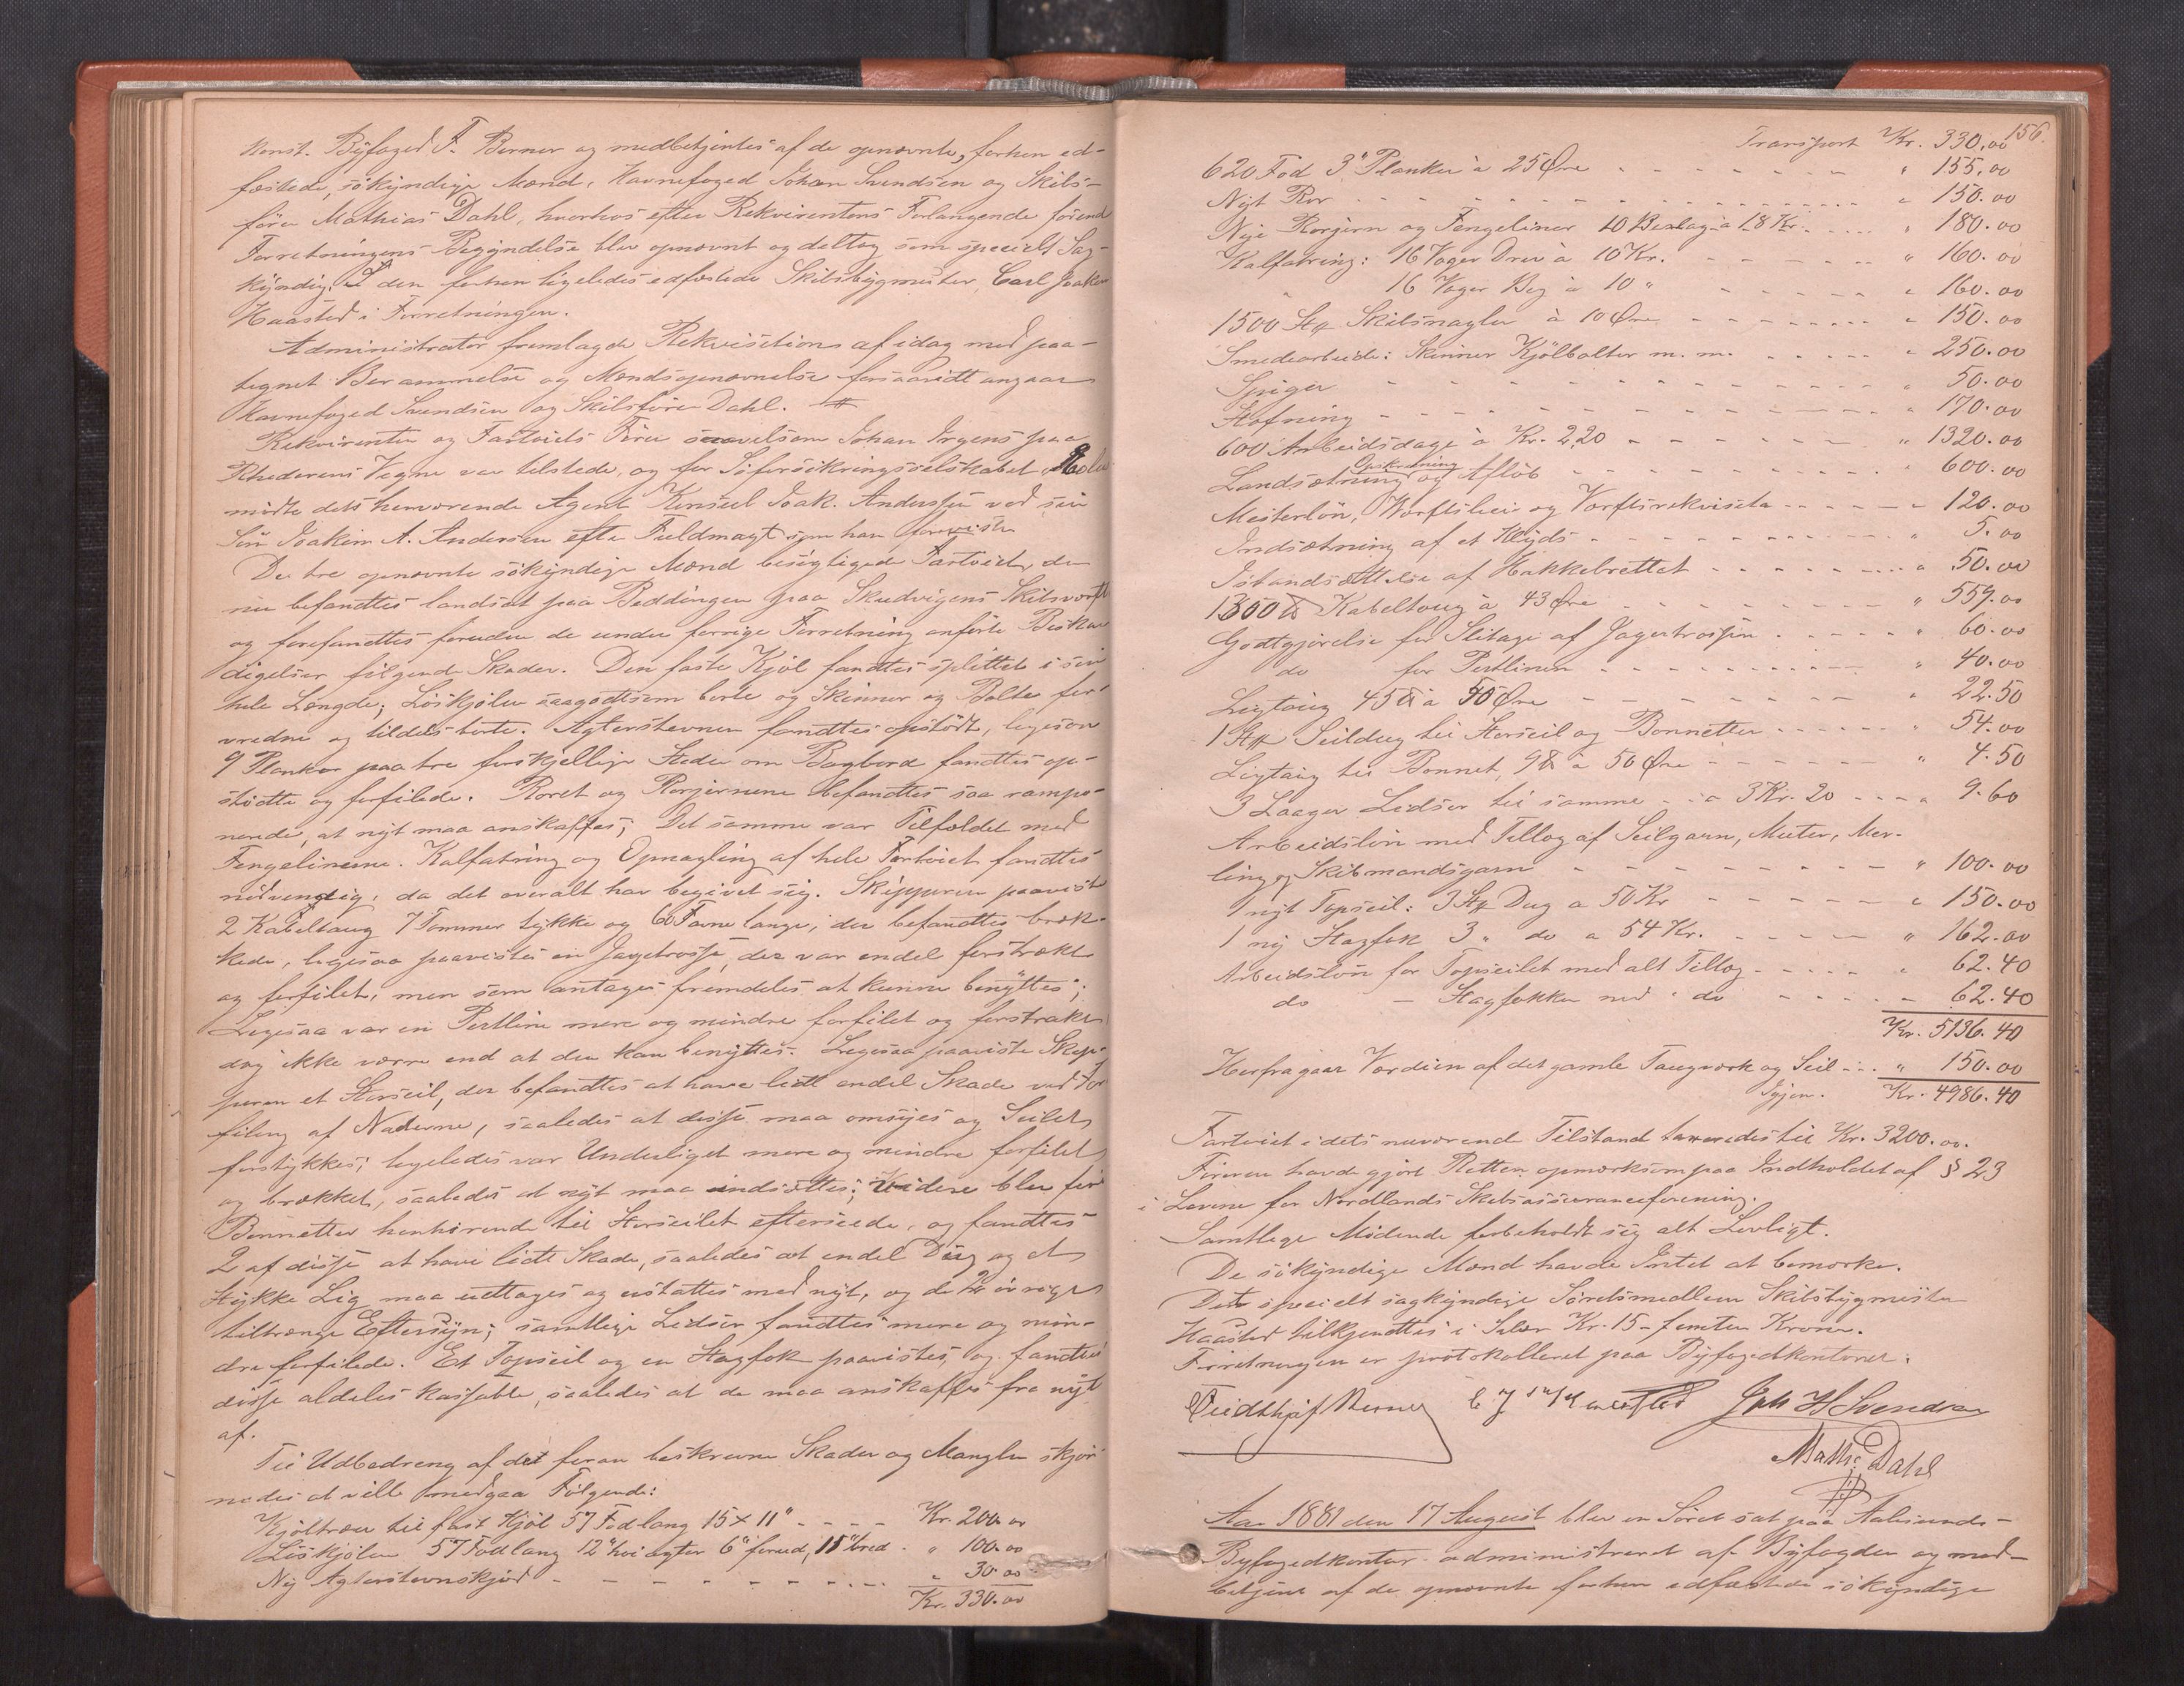 Konst. Byfoged F. Berner og medbetjentes af de opnævnte, forhen ed-
fæstede, sökyndige Mænd, Havnefoged Johan Svendsen og Skibs-
förer Mathias Dahl, hvorhos efter Rekvirentens Forlangende förend
Forretningens Begyndelse blev opnævnt og deltog som specielt Sag-
kyndig den forhen ligeledes edfæstede Skibsbygmester, Carl Joakim
Haasted i Forretningen.
Administrator fremlagde Rekvisition af idag med paa-
tegnet Berammelse og Mændsopnævnelse forsaavidt angaar
Havnefoged Svendsen og Skibsförer Dahl.
Rekvirenten og Fartöiets Förer saavelsom Johan Irgens paa
Rhederens Vegne var tilstede, og for Söforsikringsselskabet
mödte dets herværende Agent Konsul Joak. Andersen ved sin
Sön Joakim A. Andersen efter Fuldmagt som han foreviste
De tre opnævnte sökyndige Mænd besigtigede Fartöiet, der
nu befandtes landsat paa Beddingen paa Skudvigens Skibsværft
og forefandtes foruden de under forrige Forretning anförte Beska-
digelser fölgende Skader. Den faste Kjöl fandtes splittet i sin
hele Længde; Löskjölen saagodtsom borte og Skinner og Bolter for-
vredne og tildels borte. Agterstevnen fandtes opstödt, ligesom
9 Planker paa tre forskjellige Steder om Bagbord fandtes op-
stödte og forfilede. Roret og Rorjernene befandtes saa rampo-
nerede, at nyt maa anskaffes; Det samme var Tilfældet med
Fengelinerne. Kalfatring og Opnagling af hele Fartöiet fandtes
nödvendig, da det overalt har begivet sig. Skipperen paaviste
2 Kabeltaug 7 Tommer tykke og 60 Favne lange, der befandtes bræk-
kede, ligesaa paavistes en Jagertrosse, der var endel forstrakt
og forfilet, men som antages fremdeles at kunne benyttes;
Ligesaa var en Pertline mere og mindre forfilet og forstrakt
dog ikke værre end at den kan benyttes. Ligesaa paaviste Skip-
peren et Storseil, der befandtes at have lidt endel Skade ved For-
filing af Naderne, saaledes at disse maa omsyes og Seilet
forstykkes; ligeledes var Underliget mere og mindre forfilet
og brækket, saaledes at nyt maa indsættes; Videre blev fire
Bonnetter henhörende til Storseilet efterseede, og fandtes
2 af disse at have lidt Skade, saaledes at endel Dug og et
Stykke Lig maa udtages og erstattes med nyt, og de 2 övrige
tiltrænge Eftersyn; samtlige Lidser fandtes mere og min-
dre forfilede. Et Topseil og en Stagfok paavistes, og fandtes
disse aldeles kassable, saaledes at de maa anskaffes fra nyt
af.
Til Udbedring af det foran beskrevne Skader og Mangler skjön-
nedes at ville medgaa Fölgende:
Kjöltræer til fast Kjöl 57 Fod lang 15 x 11" - - - - Kr. 200.00
Löskjölen 57 Fod lang 12" höi agter 6" forud, 11" bred - " 100.00
Ny Agterstevnskjöd - - - - - - - - - - " 30.00
Kr. 330.00
156.
Transport Kr. 330.00
620 Fod 3" Planker à 25 Øre - - - - - - - " 155.00
Nyt Ror - - - - - - - - - - " 150.00
Nye Rorjern og Fengeliner 10 Beslag à 18 Kr. - - - " 180.00
Kalfatring: 16 Vager Drev à 10 Kr. - - - - - " 160.00
" 16 Vager Beg à 10 " - - - - - " 160.00
1500 Stk Skibsnagler à 10 Øre - - - - - - " 150.00
Smedearbeide: Skinner Kjölbolter m. m. - - - - - " 250.00
Spiger - - - - - - - - - - - " 50.00
Stofning - - - - - - - - - - " 170.00
600 Arbeidsdage à Kr. 2,20 - - - - - - " 1320.00
Opskruning
Landsætning og Afløb - - - - - - - " 600.00
Mesterlön, Værftsleie og Værftsrekvisita - - - - - " 120.00
Indsætning af et Klyds - - - - - - - " 5.00
Istandsættelse af Hakkebrettet - - - - - - " 50.00
1300 ℔ Kabeltoug à 43 Øre - - - - - - " 559.00
Godtgjörelse for Slitage af Jagertrossen - - - - - " 60.00
do for Pertlinen - - - - - - - " 40.00
Ligtoug 45 ℔ à 50 Øre - - - - - - - " 22.50
1 Stk Seildug til Storseil og Bonnetter - - - - - " 54.00
Ligtoug til Bonnet, 9 ℔ à 50 Øre - - - - - " 4.50
3 Laager Lidser til samme - à 3 Kr. 20 - - - " 9.60
Arbeidslön med Tillæg af Seilgarn, Huter, Mer-
ling og Skibmandsgarn - - - - - - - " 100.00
1 nyt Topseil: 3 Stk Dug a 50 Kr - - - - - " 150.00
1 ny Stagfok 3 " do a 54 Kr. - - - - " 162.00
Arbeidslön for Topseilet med alt Tillæg - - - - - " 62.40
do - Stagfokken med " do - - - - - 62.40
Kr. 5136.40
Herfra gaar Værdien af det gamle Taugværk og Seil - - - " 150.00
Igjen. Kr. 4986.40
Fartöiet i dets nuværende Tilstand taxeredes til Kr. 3200.00.
Föreren havde gjort Retten opmærksom paa Indholdet af § 23
i Lovene for Nordlands Skibsassuranceforening.
Samtlige Mödende forbeholdt sig alt Lovligt.
De sökyndige Mænd havde Intet at bemærke.
Det specielt sagkyndige Söretsmedlem Skibsbygmester
Haasted tilkjendtes i Salær Kr. 15 - femten Kroner.
Forretningen er protokolleret paa Byfogedkontoret.
Fridthjof Berner C J Haasted Joh H Svendsen
Maths Dahl
Aar 1881 den 17 August blev en Söret sat paa Aalesunds
Byfogedkontor administreret af Byfogden og med-
betjent af de opnævnte forhen edfæstede sökyndige